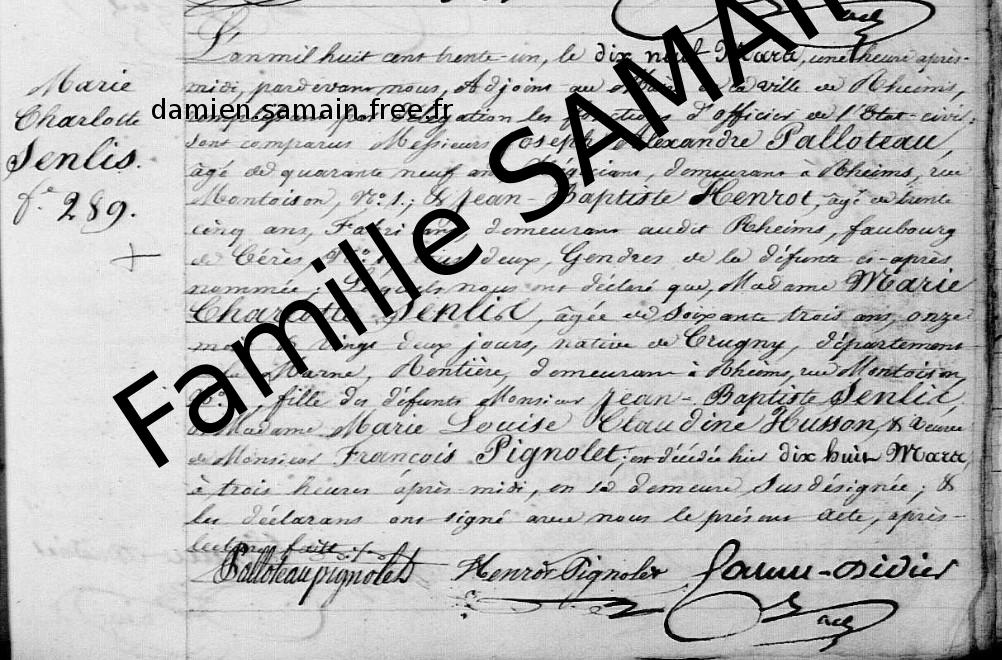 Marie
Charlotte
Senlis.
fe 289.
L'an mil huit cent trente-un, le dix neuf Mars, une heure après-
midi, pardevant nous, Adjoint au Maire de la ville de Rheims,
délégation les fonctions d'officier de l'Etat-civil,
sont comparus Messieurs Joseph Alexandre Palloteau,
âgé de quarante neuf ans, Négociant, demeurant à Rheims, rue
Montoison, No. 1.; & Jean-Baptiste Henrot, âgé de trente
cinq ans, Fabricant, demeurant audit Rheims, faubourg
de Cérès, tous deux, Gendres de la défunte ci-après
nommée; Lesquels nous ont déclaré que, Madame Marie
Charlotte Senlis, âgée de soixante trois ans, onze
mois & vingt deux jours, native de Crugny, département
de la Marne, Rentière, demeurant à Rheims, rue Montoison,
fille des défunts Monsieur Jean-Baptiste Senlis,
& Madame Marie Louise Claudine Husson, & Veuve
de Monsieur François Pignolet, est décédée hier dix huit Mars,
à trois heures après-midi, en sa demeure susdésignée; &
les déclarans ont signé avec nous le présent acte, après-
lecture faite
Palloteau pignolet Henrot Pignolet
damien.samain.free.fr
Famille SAMAIN